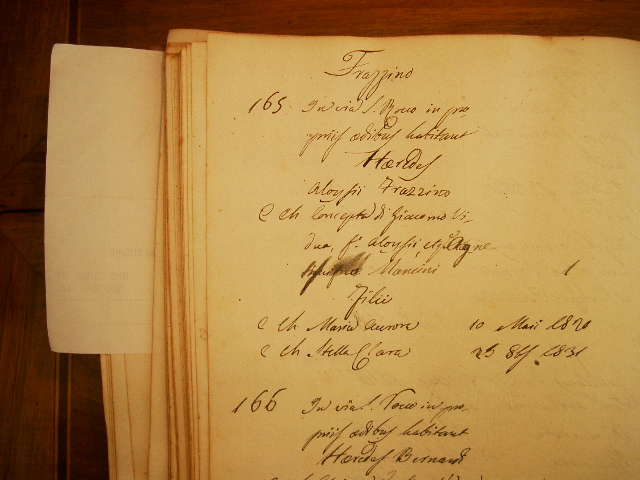 Frazzino
165 In via S. Roco in pro-
priis ædibus habitant
Hæredes
Aloysii Frazzino
C Ch Concepta di Giacomo Vi-
dua, f.a Aloysii, et q.m Agne-
Mancini 1
Filii
C Ch Maria Aurora 10 Maii 1820
C Ch Stella Clara 25 8bris 1831
166 In via S. Roco in pro-
priis ædibus habitant
Hæredes Bernardi